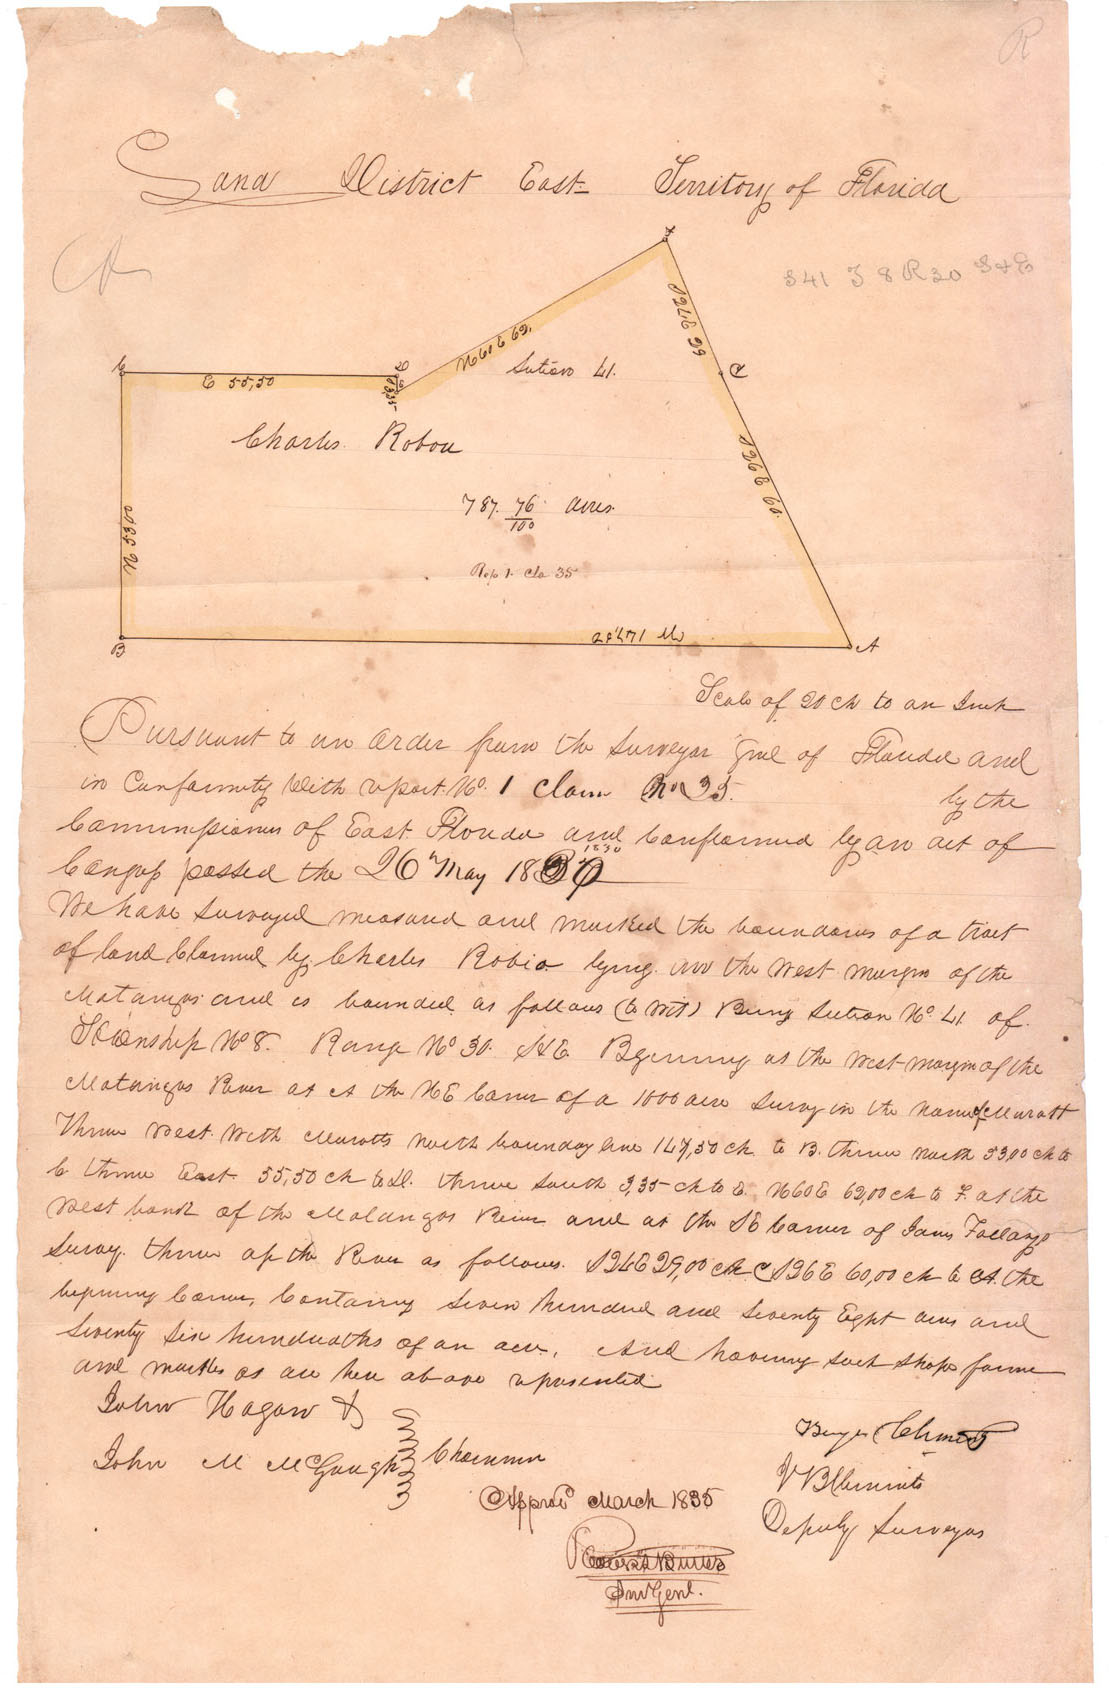 R
Land District East Territory of Florida
R
S 41 T 8 R 30 S & E
F
S 24 E 29
N 61 E 62,
C
Section 41.
E
D
E 55,50
S 3,35
Charles Robou
S 26 E 60.
787. 76/100 acres.
N 53,00
Rep 1. cla 35
B
A
Scale of 20 ch to an Inch
Pursuant to an Order from the Surveyor Genl of Florida and
in Conformity With report No. 1 Claim No 35. by the
Commissioners of East Florida and Confirmed by an act of
1830
Congress passed the 26th May 18
We have Surveyed measured and marked the boundaries of a tract
of land Claimed by Charles Robio lying on the West Margin of the
Matanzas and is bounded as follows (to Wit) Being Section No. 41 of
Township No 8. Range No 30. S & E. Beginning at the West margin of the
Matanzas River at A the NE Corner of a 1000 acre Survey in the name of Maratt
Thence West With Maratts North boundary line 147,50 ch to B. thence North 53,00 ch to
C thence East 55,50 ch to D. thence South 3,35 ch to E. N60E 62,00 ch to F. at the
West bank of the Matanzas River and at the SE Corner of
Survey. thence up the River as follows. S24E 29,00 ch C S26E 60,00 ch to A. the
beginning Corner, Containing Seven hundred and Seventy Eight acres and
Seventy Six hundredths of an acre. And having Such Shape form
and marks as are here above represented
John Hagan &
John M McGaugh Chainmen
Benjn Clements
J B Clements
Deputy Surveyors
Approvd March 1835
Robert Butler
Sur Genl.